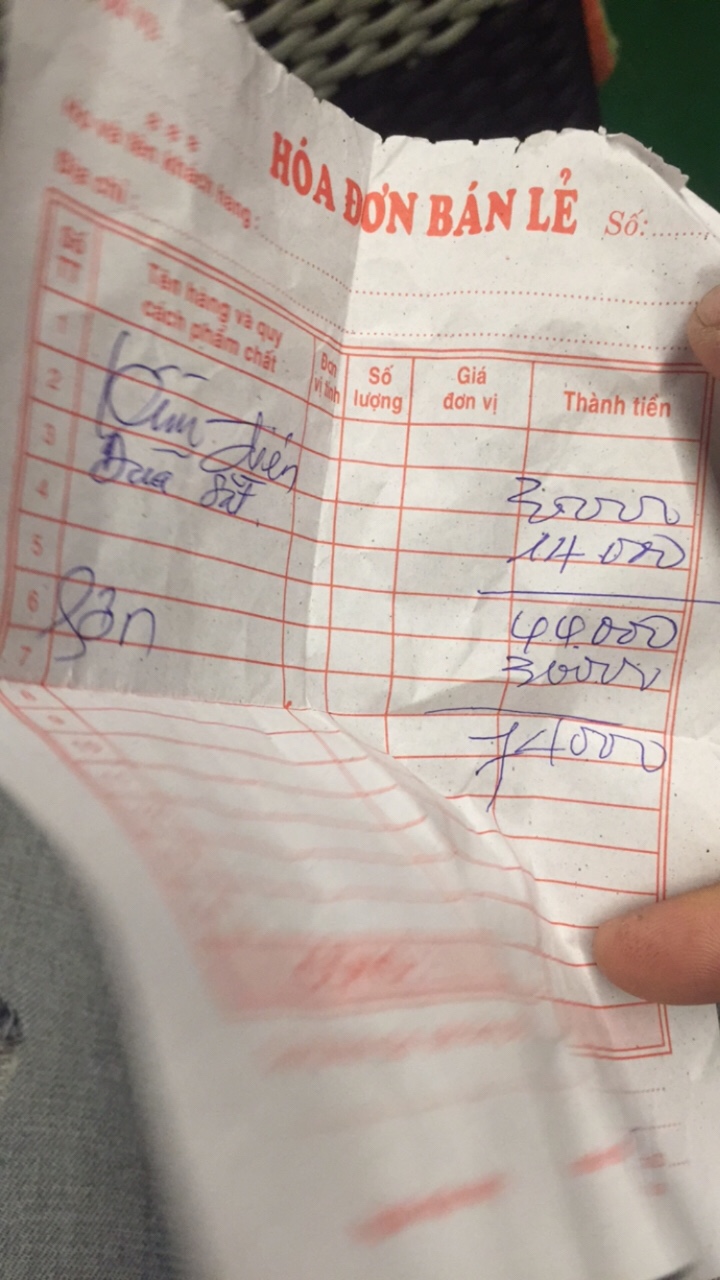 HÓA ĐƠN BÁN LẺ Số:
Họ và tên khách hàng:
Địa chỉ:
Số TT
Tên hàng và quy
cách phẩm chất
Đơn
vị tính
Số
lượng
Giá
đơn vị
Thành tiền
1
2
Kìm điện
30000
3
Đũa sắt
14 000
4
5
44000
6
Sơn
30000
7
74000
8
9
10